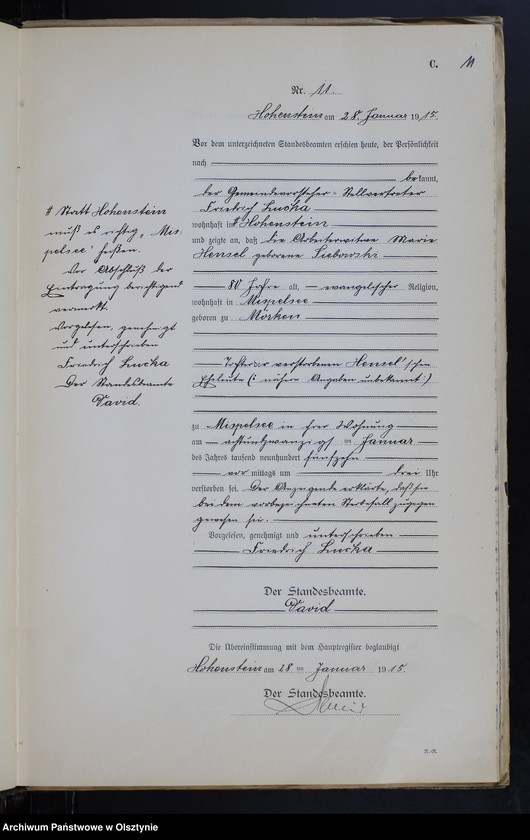 C. 11
Nr. 11.
Hohenstein am 28. Januar 1915.
Vor dem unterzeichneten Standesbeamten erschien heute, der Persönlichkeit
nach
bekannt,
der Gemeindevorsteher-Stellvertreter
Friedrich Lucka
wohnhaft in # Hohenstein
und zeigte an, daß die Arbeiterwitwe Marie
Hensel geborene
80 Jahre alt, evangelischer Religion,
wohnhaft in Mispelsee
geboren zu Mörken
Tochter der verstorbenen Hensel'schen
Eheleute (: nähere Angaben unbekannt :)
zu Mispelsee in ihrer Wohnung
am achtundzwanzigsten Januar
des Jahres tausend neunhundert fünfzehn
vor mittags um drei Uhr
verstorben sei. Der Anzeigende erklärte, daß er
bei dem vorbezeichneten Sterbefall zugegen
gewesen sei.
Vorgelesen, genehmigt und unterschrieben
Friedrich Lucka
Der Standesbeamte.
David
Die Übereinstimmung mit dem Hauptregister beglaubigt
Hohenstein am 28. Januar 1915.
Der Standesbeamte.
David
# Statt Hohenstein
muß es richtig „Mis-
pelsee" heißen.
Vor Abschluß der
Eintragung berichtigend
vermerkt.
Vorgelesen, genehmigt
und unterschrieben
Friedrich Lucka
Der Standesbeamte
David.
Archiwum Państwowe w Olsztynie